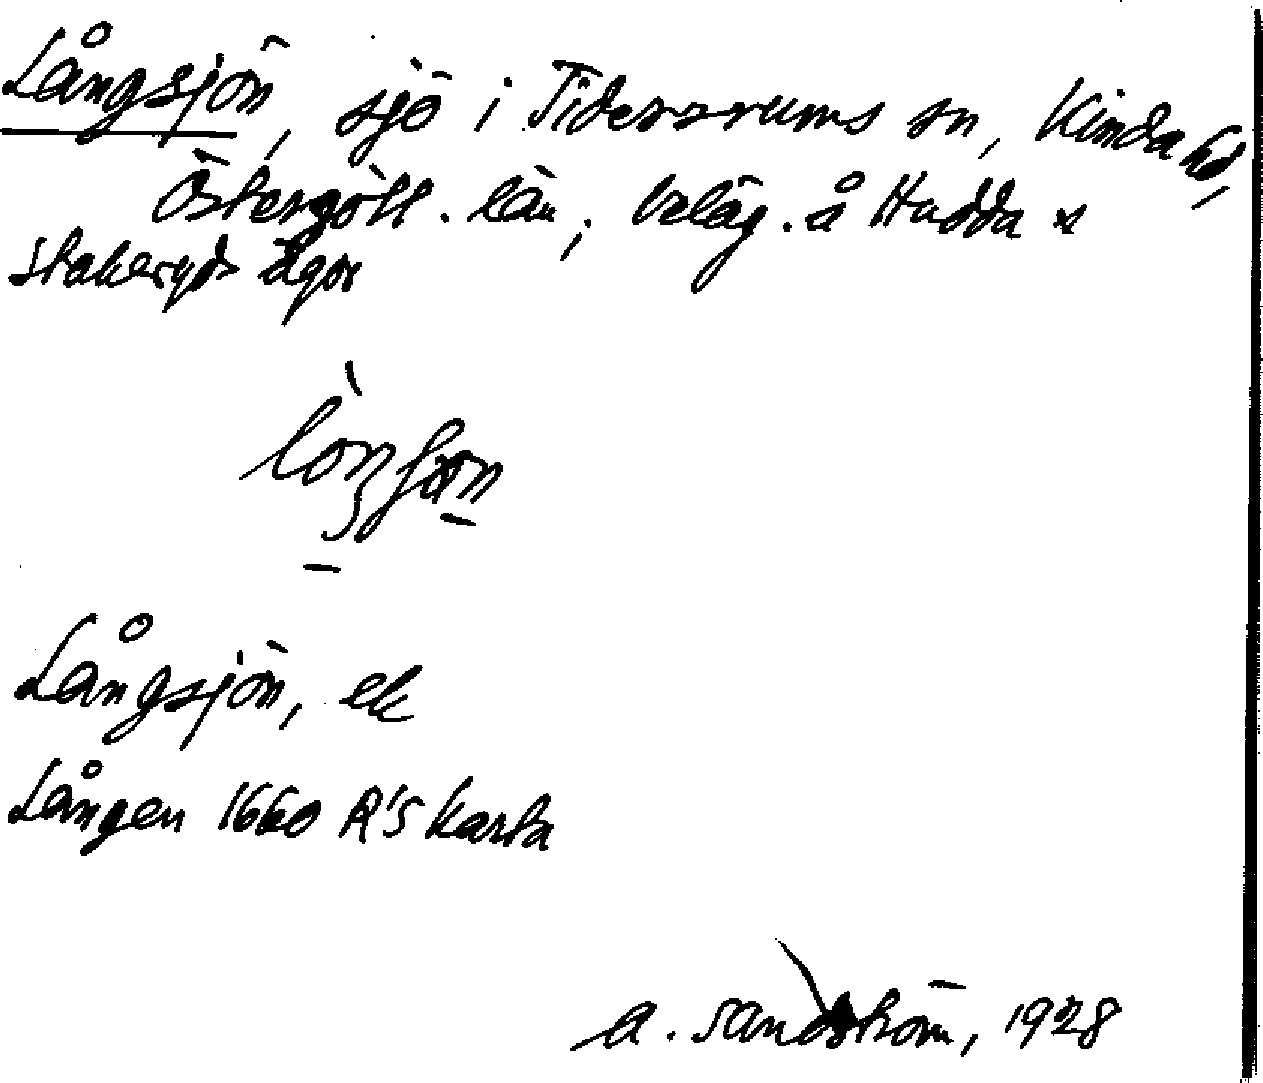 Långsjön, sjö i Tidersrums sn, Kinda hd,
Östergötl. län, beläg. å Hadda x
Stakeryds ägor
Långsjön, ek
Lången 1660 R's karta
A. Sandström, 1928